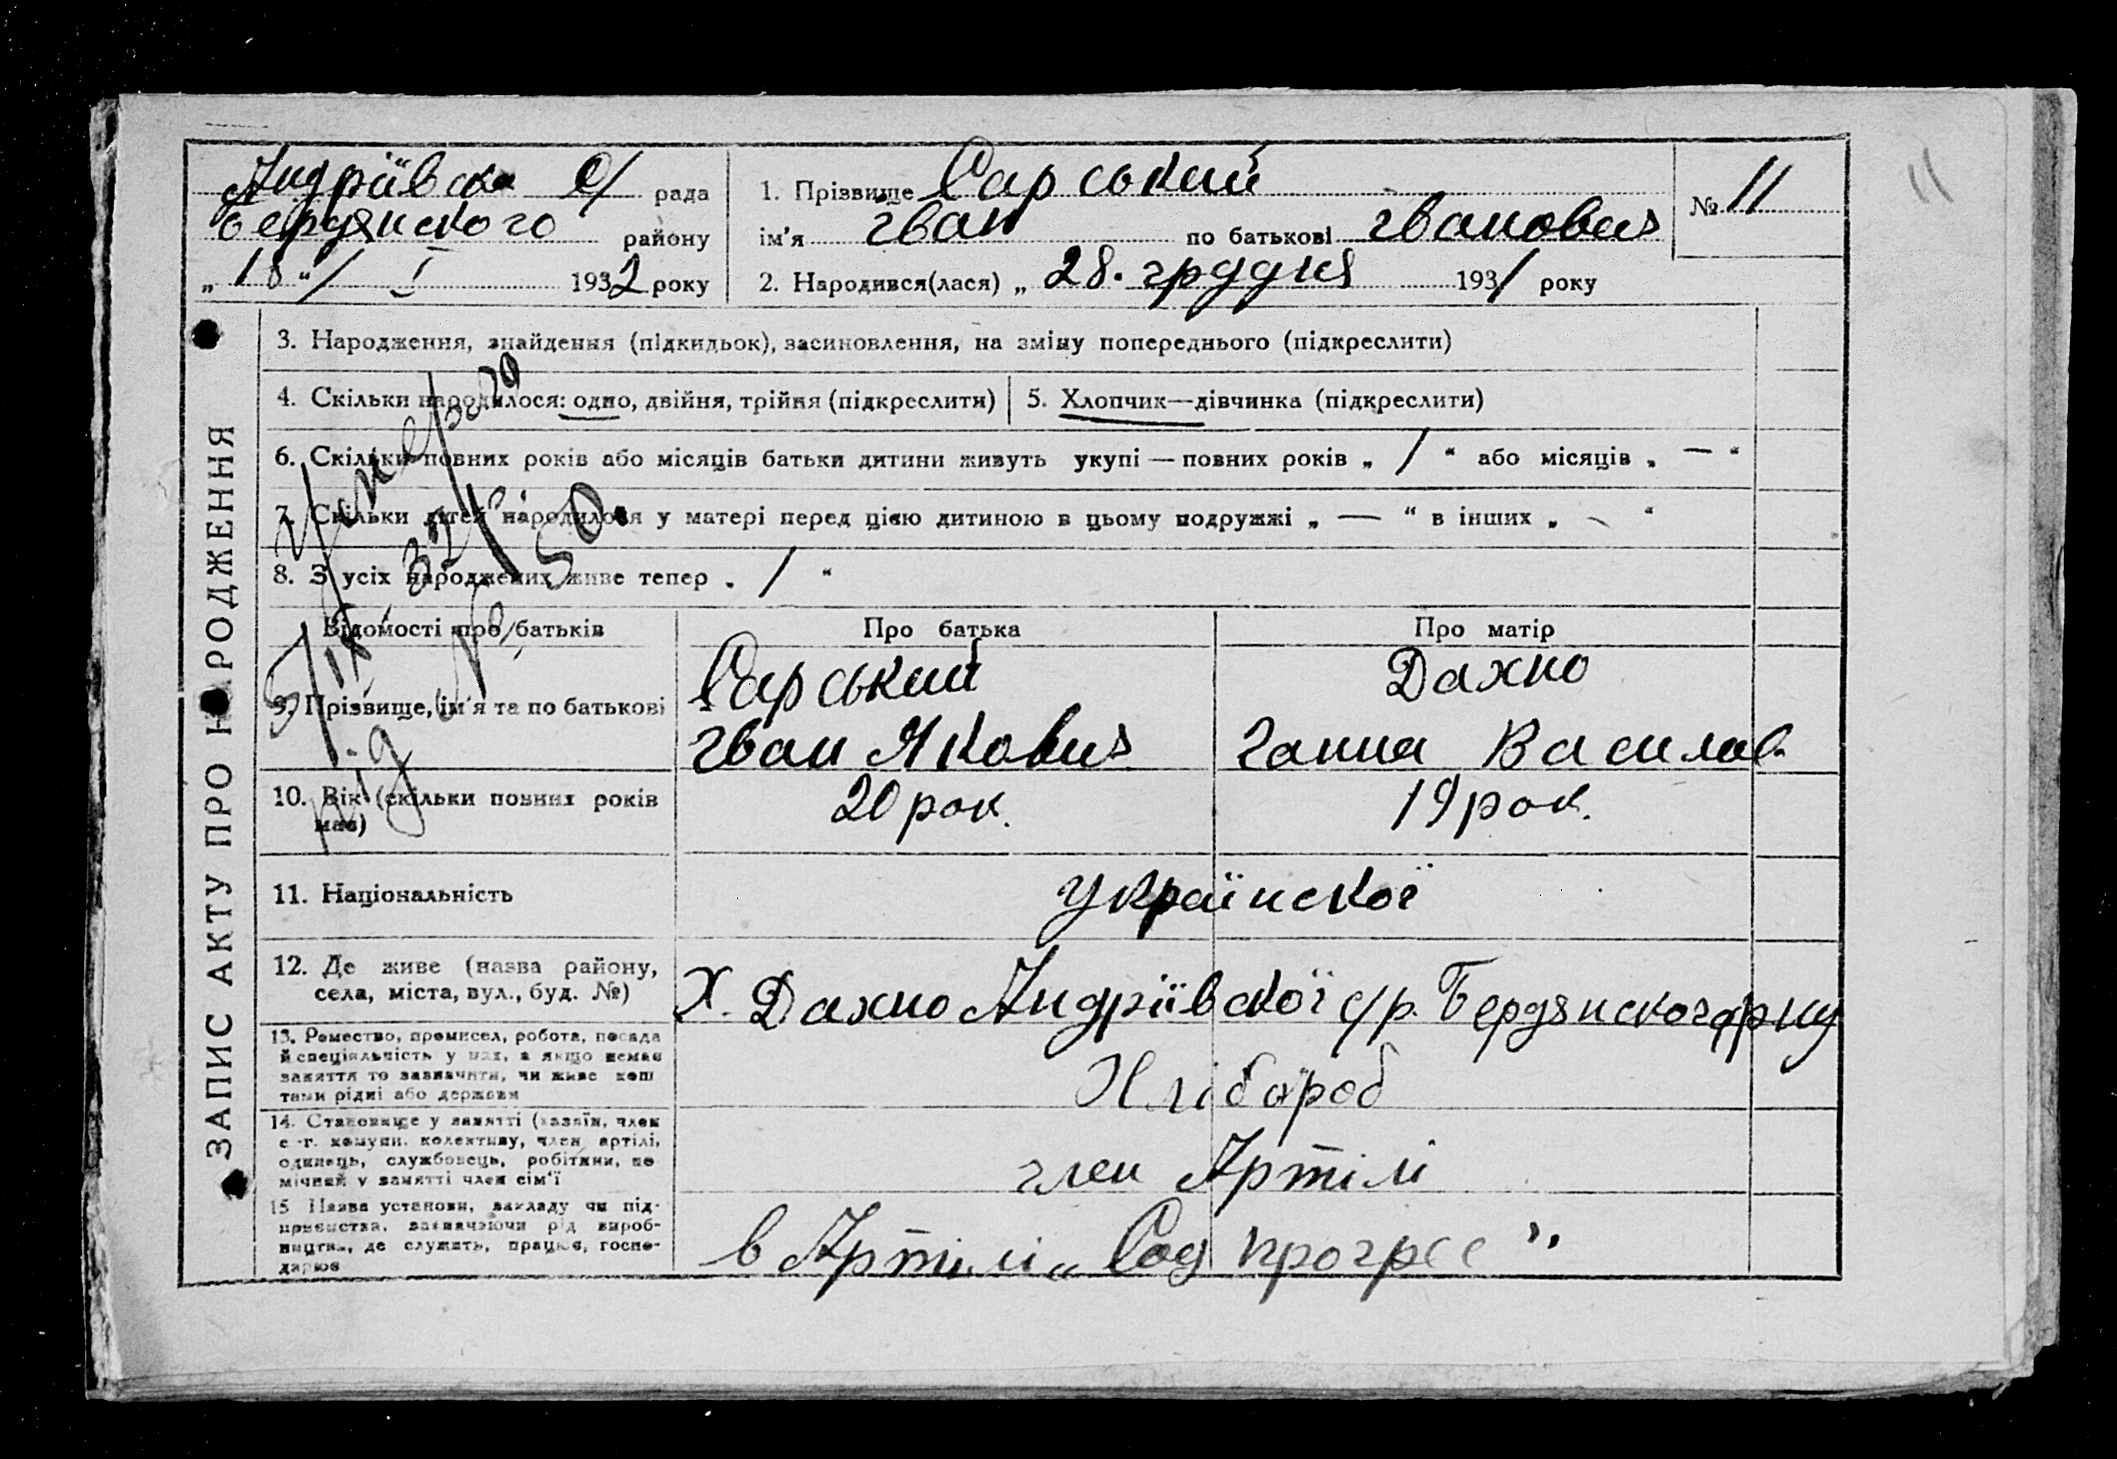 Андріївска с/ рада
Бердянского району
„18"/ I 1932 року
1. Прізвище Сарський
ім'я Іван по батькові Іванович
2. Народився(лася) „ 28. грудня 1931 року
№ 11
11
ЗАПИС АКТУ ПРО НАРОДЖЕННЯ
3. Народження, знайдення (підкидьок), засиновлення, на зміну попереднього (підкреслити)
4. Скільки народилося: одно, двійня, трійня (підкреслити)
5. Хлопчик—дівчинка (підкреслити)
6. Скільки повних років або місяців батьки дитини живуть укупі — повних років „ 1 " або місяців „ — "
7. Скільки дітей народилося у матері перед цією дитиною в цьому подружжі „ — " в інших „ - "
8. З усіх народжених живе тепер „ 1 "
Умерло
5/IX 32 р.
під № 50.
Відомості про батьків
Про батька
Про матір
9. Прізвище, ім'я та по батькові
Сарський
Іван Якович
Дахно
Ганна Василів.
10. Вік (скільки повних років
має)
20 рок.
19 рок.
11. Національність
Українскої
12. Де живе (назва району,
села, міста, вул., буд. №)
Х. Дахно Андріївскої с/р. Бердянского р-ну
13. Ремество, промисел, робота, посада
й спеціяльність у них, а якщо немає
заняття то зазначити, чи живе кош
тами рідні або держави
Хлібороб
14. Становище у занятті (хазяїн, член
с.-г. комуни, колективу, член артілі,
одинець, службовець, робітник, по
мічний у занятті член сім'ї
член Артілі
15 Назва установи, закладу чи під-
приємства, зазначаючи рід вироб-
ництва, де служить, працює, госпо-
дарює
в Артілі „Сод прогрес"